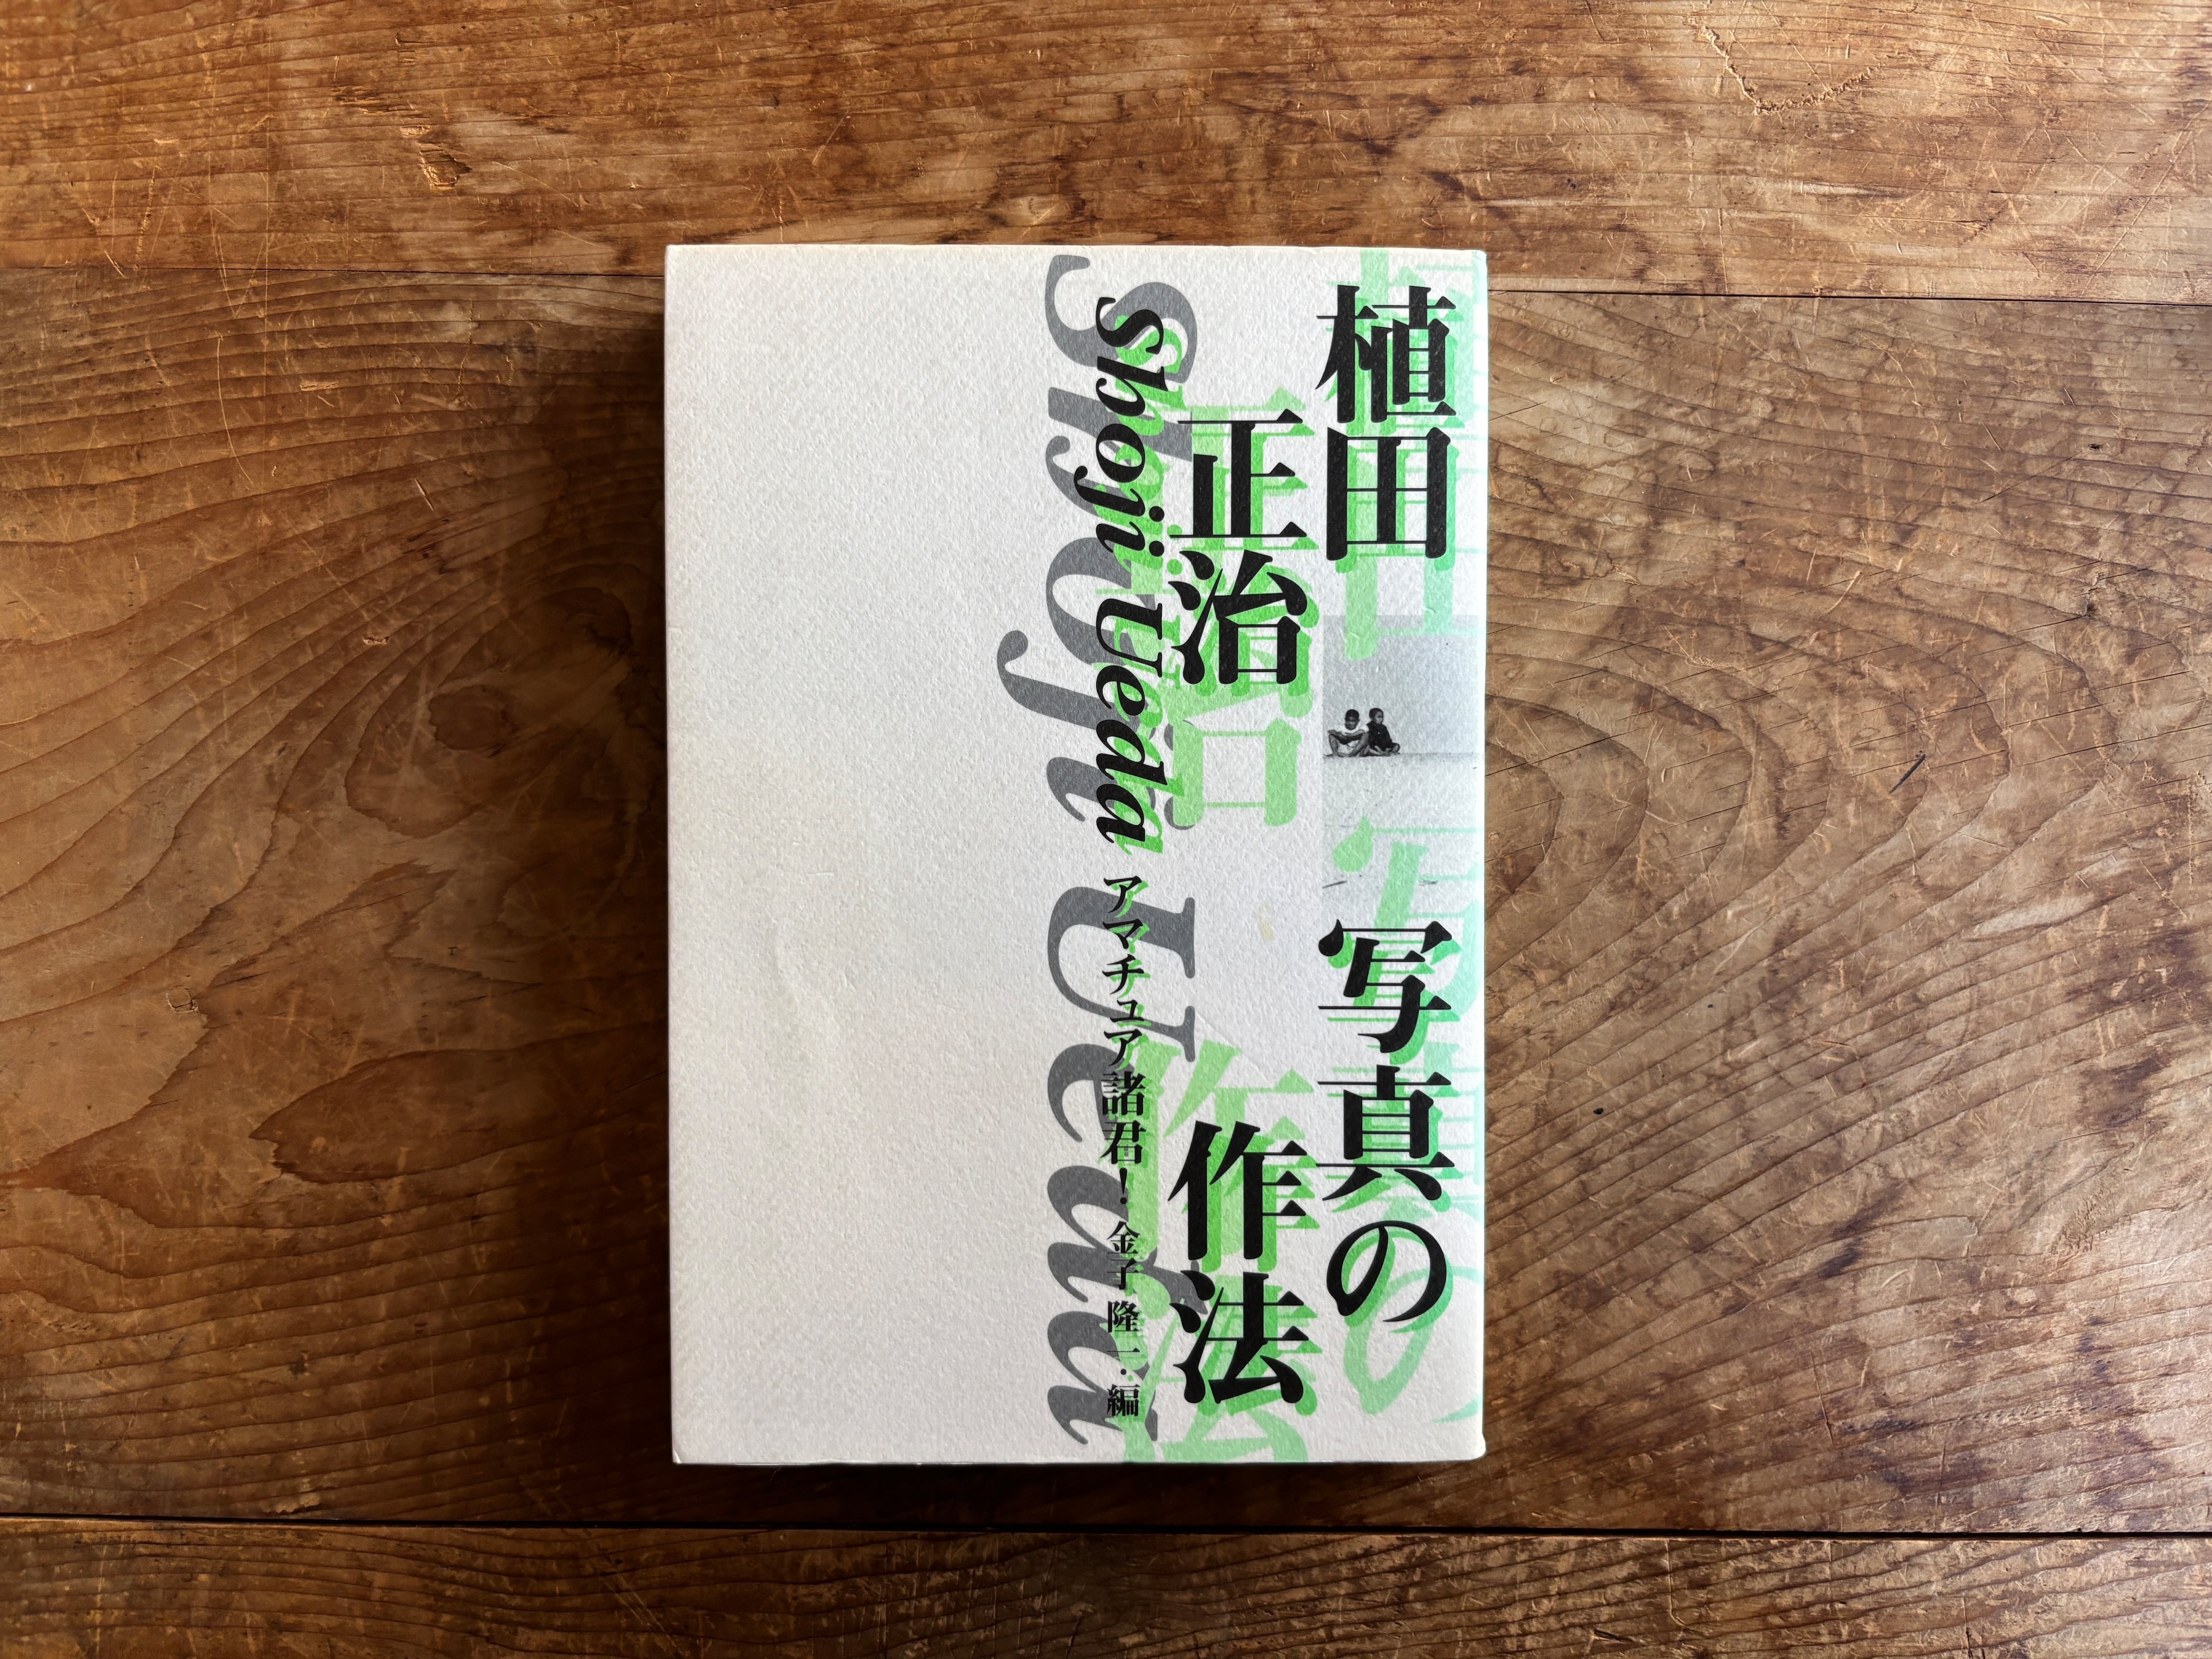 植田
正治
写真の
作法
Shoji Ueda
アマチュア諸君！
金子隆一・編
Shoji Ueda